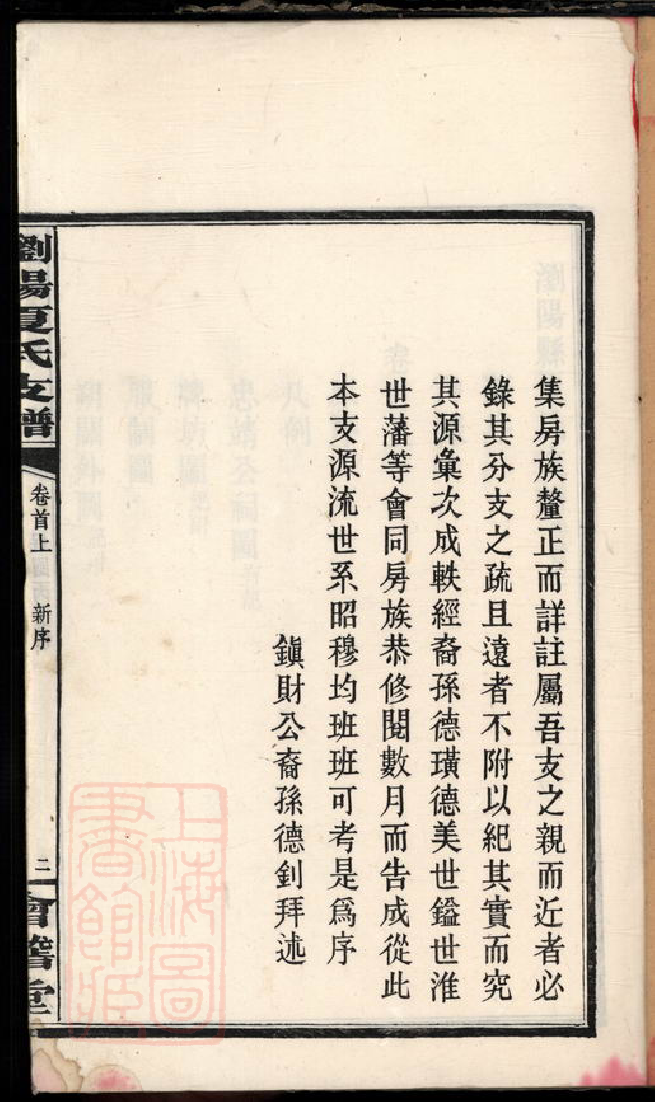 集房族釐正而詳註屬吾支之親而近者必
錄其分支之疏且遠者不附以紀其實而究
其源彙次成軼經裔孫德璜德美世鎰世淮
世藩等會同房族恭修閱數月而告成從此
本支源流世系昭穆均班班可考是爲序
鎮財公裔孫德釗拜述
瀏陽夏氏支譜
卷首上
新序
二
會稽堂
上海圖書館藏